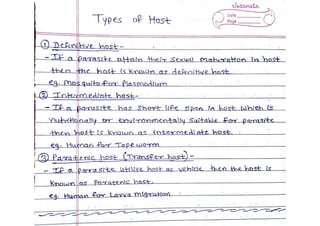 classmate
Date
Page
Types of Host
① Definitive host -
- If a parasite attain their sexual maturation in host
then the host is known as definitive host
eg. Mosquito for Plasmodium
② Intermediate host -
- If a parasite has short life span in host which is
nutritionally or environmentally suitable for parasite
then host is known as intermediate host.
eg. Human for Tape worm
③ Paratenic host (Transfer host) -
- If a parasite utilise host as vehicle then the host is
known as Paratenic host.
eg. Human for Larva migration